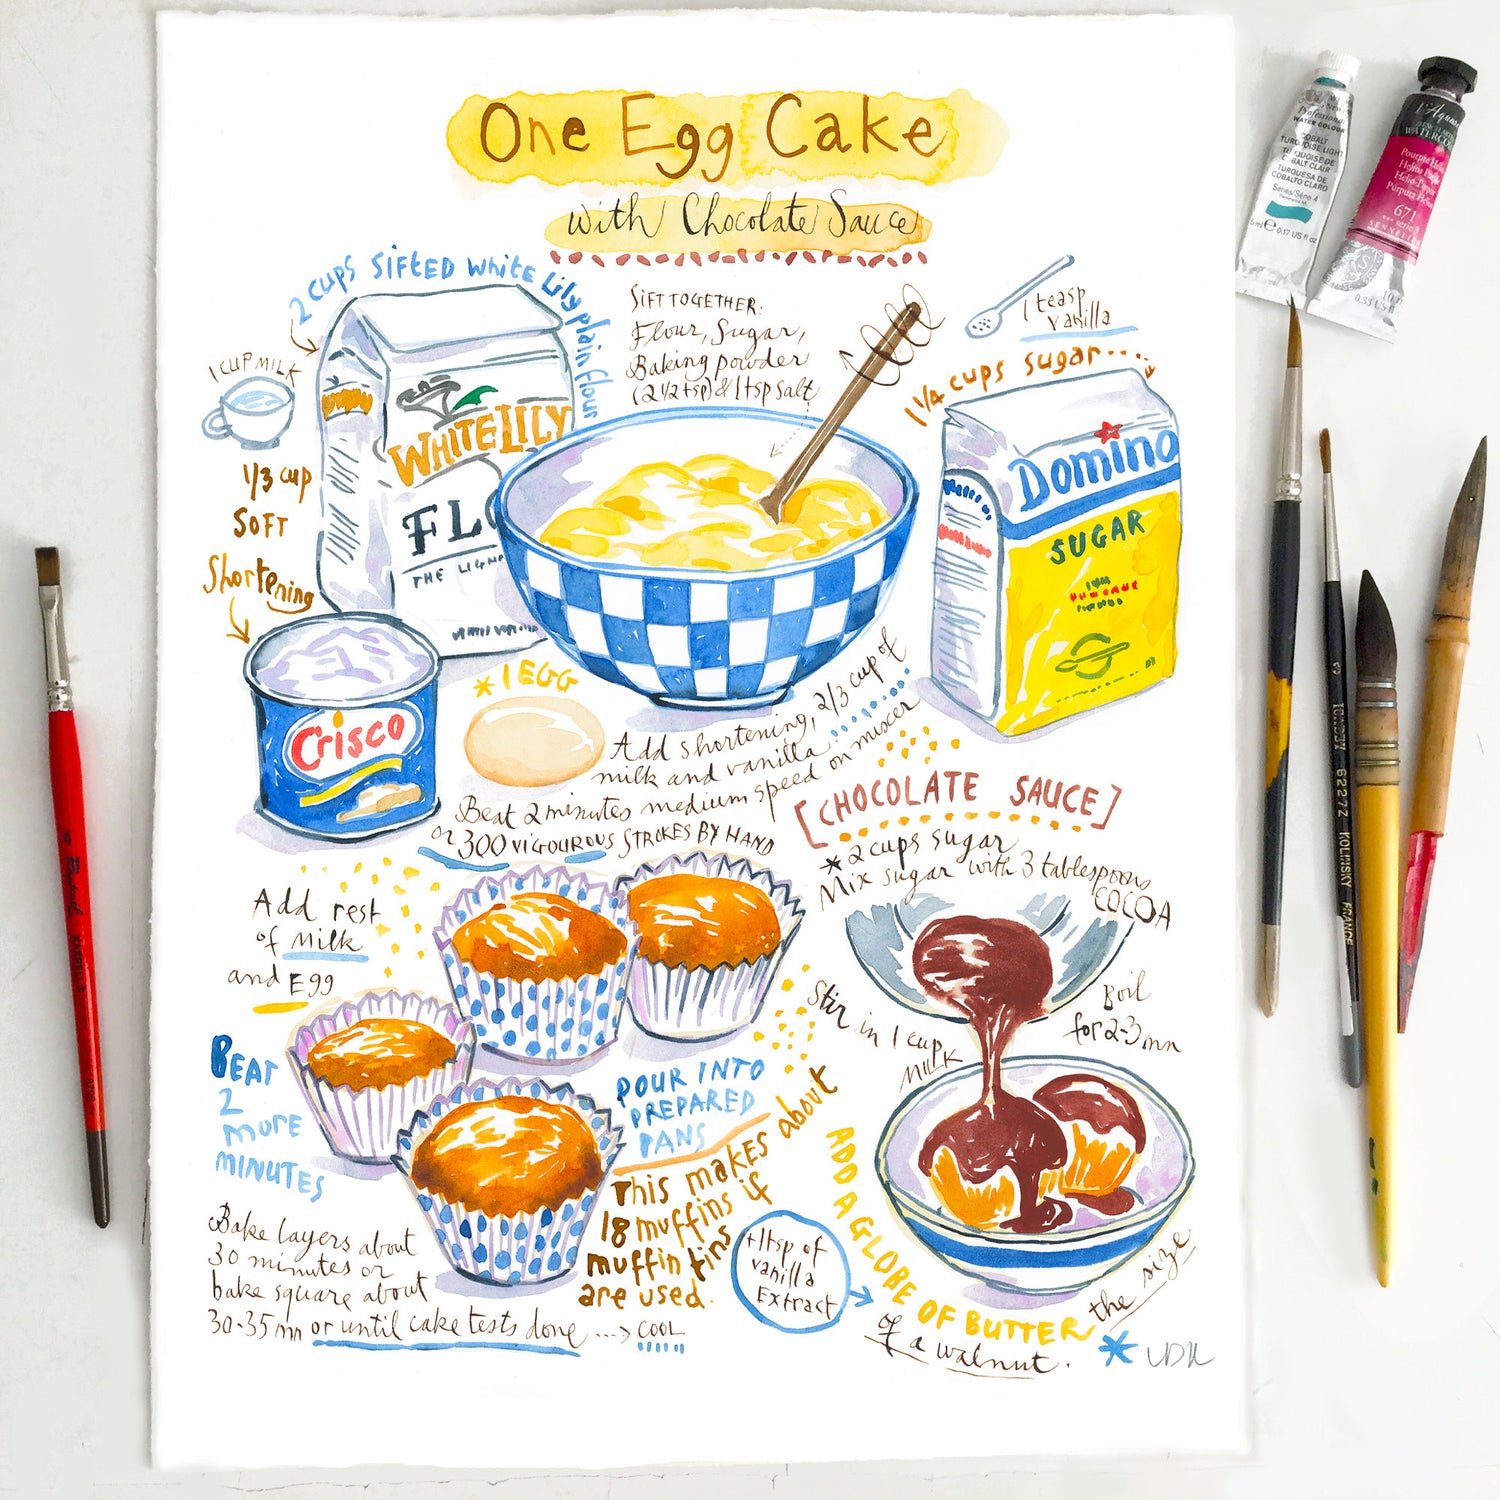 One Egg Cake
with Chocolate Sauce
2 cups SIFTED white Lily plain flour
1 CUP MILK
1/3 cup
SOFT
Shortening
WHITE LILY
FLO
THE LIGH
Crisco
SIFT TOGETHER:
Flour, Sugar,
Baking powder
(2 1/2 tsp) & 1 tsp salt
1 teasp
vanilla
1 1/4 cups sugar....
Domino
SUGAR
* 1 EGG
Add shortening, 2/3 cup of
milk and vanilla
Beat 2 minutes medium speed on mixer
or 300 VIGOUROUS STROKES BY HAND
Add rest
of milk
and Egg
BEAT
2
more
MINUTES
POUR INTO
PREPARED
PANS
This makes about
18 muffins if
muffin tins
are used.
Bake layers about
30 minutes or
bake square about
30-35 mn or until cake tests done ...> COOL
[CHOCOLATE SAUCE]
* 2 cups sugar
Mix sugar with 3 tablespoons
COCOA
Stir in 1 cup
MILK
Boil
for 2-3 mn
ADD A GLOBE OF BUTTER the size
of a walnut.
+1 tsp of
vanilla
Extract
Professional
WATER COLOUR
COBALT
TURQUOISE LIGHT
TURQUOISE DE
COBALT CLAIR
TURQUESA DE
COBALTO CLARO
Series/Série 4
5 ml e 0.17 US fl oz
671
SENNELIER
3 62277 KOLINSKY FRANCE